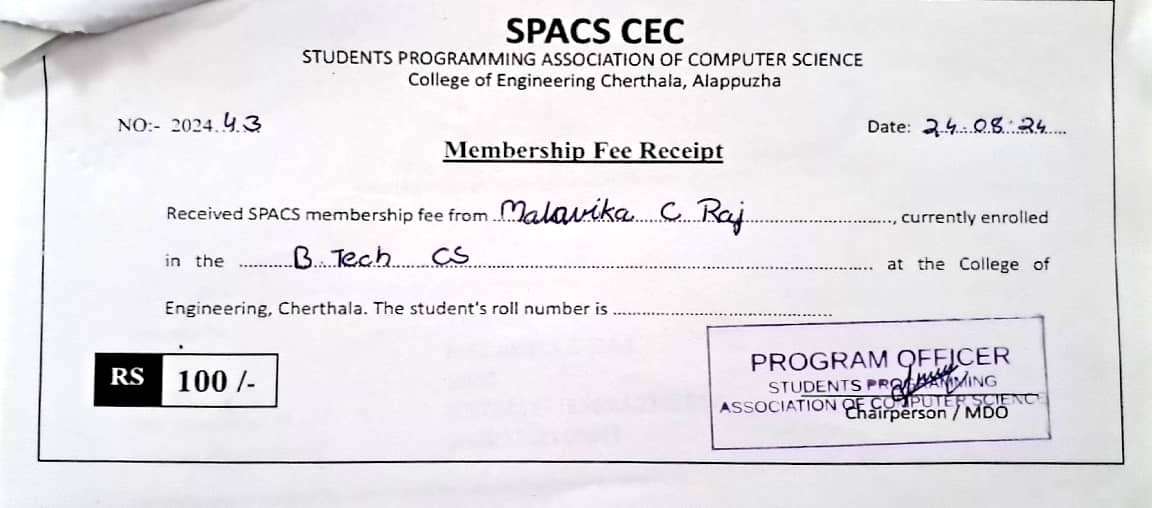 SPACS CEC
STUDENTS PROGRAMMING ASSOCIATION OF COMPUTER SCIENCE
College of Engineering Cherthala, Alappuzha
NO:- 2024.43
Date: 24.08.24
Membership Fee Receipt
Received SPACS membership fee from Malavika C Raj, currently enrolled
in the B.Tech CS at the College of
Engineering, Cherthala. The student's roll number is
RS 100 /-
PROGRAM OFFICER
STUDENTS PROGRAMMING
ASSOCIATION OF COMPUTER SCIENCE
Chairperson / MDO